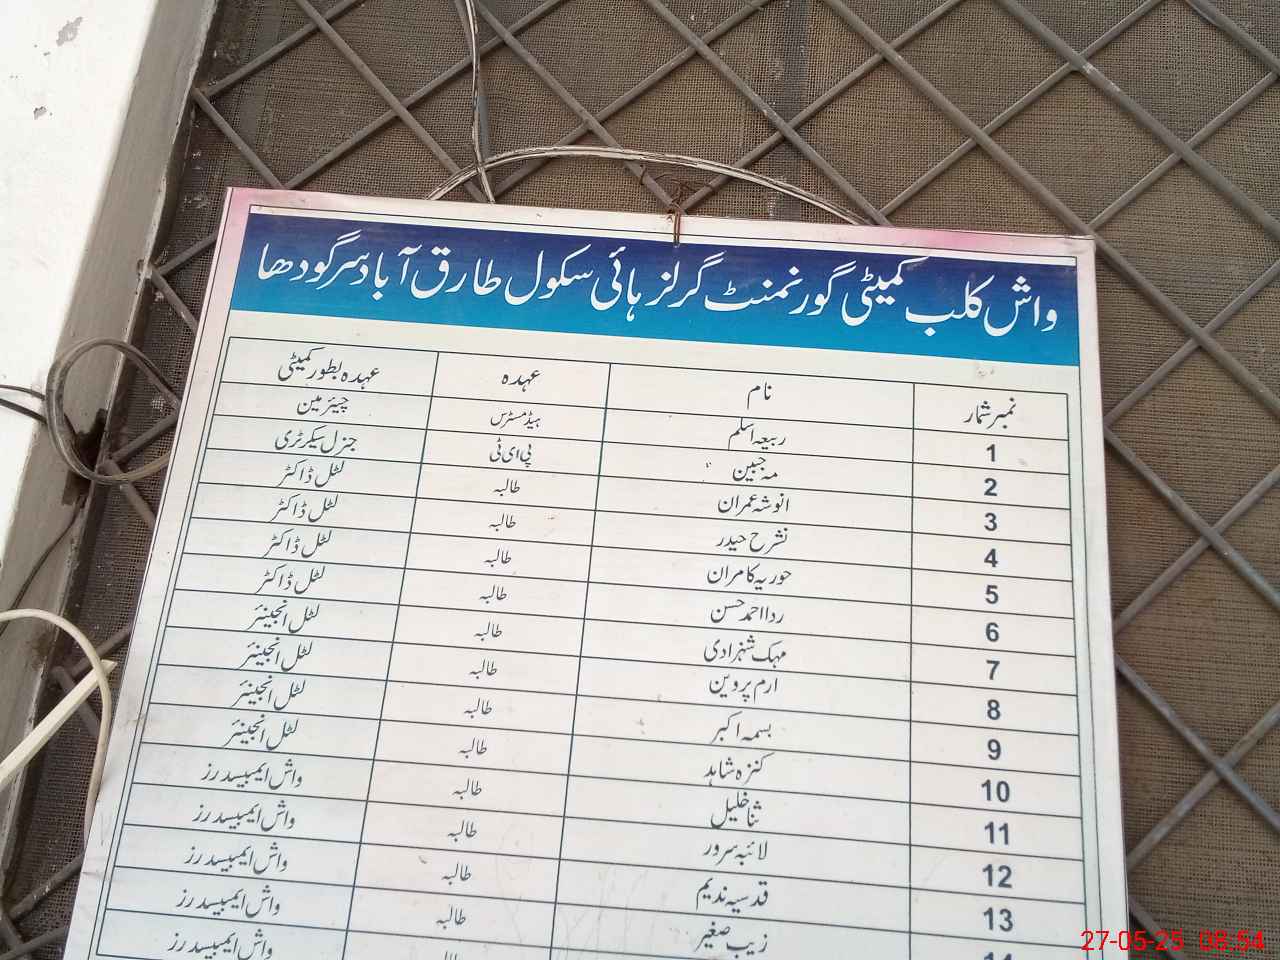 واش کلب کمیٹی گورنمنٹ گرلز ہائی سکول طارق آباد سرگودھا
نمبر شمار نام عہدہ عہدہ بطور کمیٹی
1 ربیعہ اسلم ہیڈ مسٹرس چیئرمین
2 مہ جبین پی ای ٹی جنرل سیکرٹری
3 انوشہ عمران طالبہ لٹل ڈاکٹر
4 نشرح حیدر طالبہ لٹل ڈاکٹر
5 حوریہ کامران طالبہ لٹل ڈاکٹر
6 ردا احمد حسن طالبہ لٹل ڈاکٹر
7 مہک شہزادی طالبہ لٹل انجینئر
8 ارم پروین طالبہ لٹل انجینئر
9 بسمہ اکبر طالبہ لٹل انجینئر
10 کنزہ شاہد طالبہ لٹل انجینئر
11 ثنا خلیل طالبہ واش ایمبیسیدرز
12 لائبہ سرور طالبہ واش ایمبیسیدرز
13 قدسیہ ندیم طالبہ واش ایمبیسیدرز
14 زیب صغیر طالبہ واش ایمبیسیدرز
واش ایمبیسیدرز
27-05-25 08:54